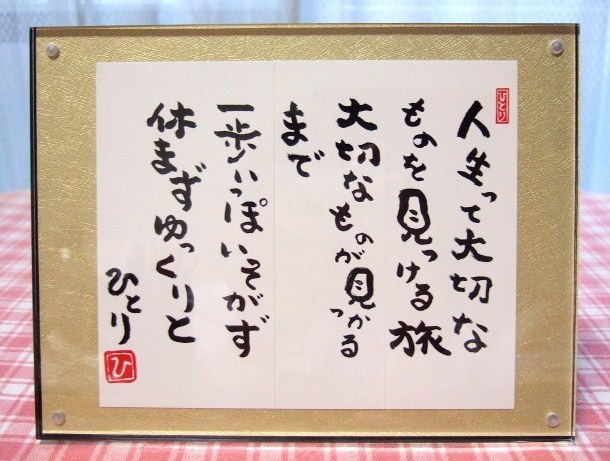 ひとり
人生って大切な
ものを見つける旅
大切なものが見つかる
まで
一歩いっぽいそがず
休まずゆっくりと
ひとり
ひ